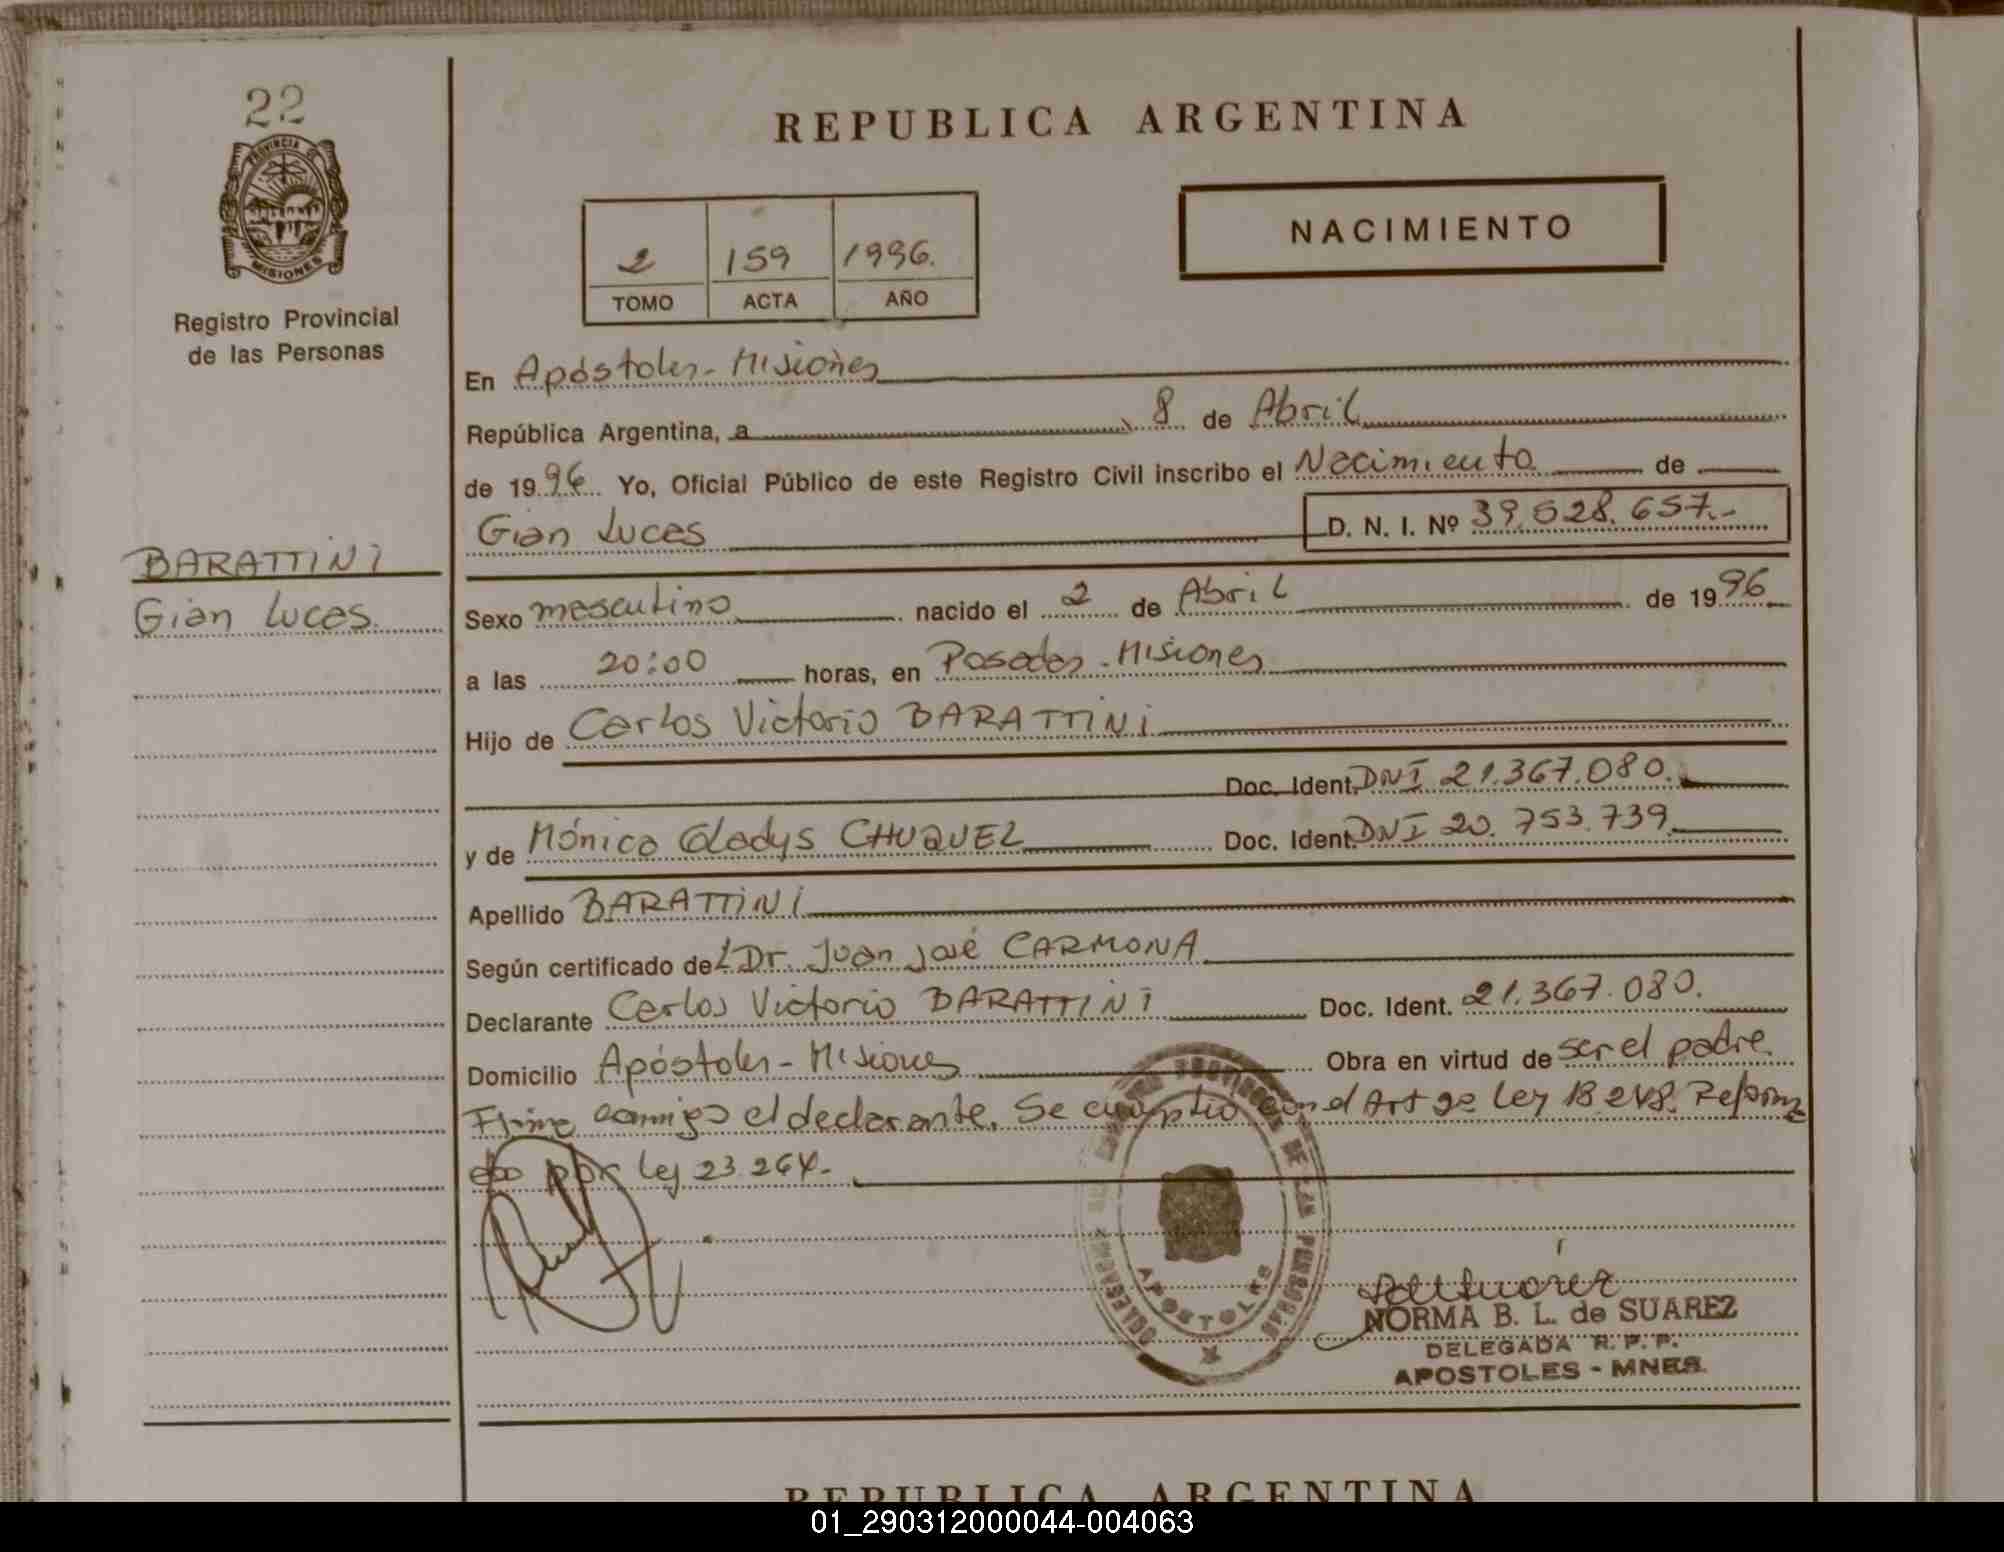 22
PROVINCIA DE
MISIONES
Registro Provincial
de las Personas
BARATTINI
Gian Lucas.
REPUBLICA ARGENTINA
NACIMIENTO
2 159 1996.
TOMO ACTA AÑO
En Apóstoles - Misiones
República Argentina, a 8 de Abril
de 1996 Yo, Oficial Público de este Registro Civil inscribo el Nacimiento de
Gian Lucas D. N. I. Nº 39.528.657.-
Sexo masculino nacido el 2 de Abril de 1996
a las 20:00 horas, en Posadas - Misiones
Hijo de Carlos Victorio BARATTINI
Doc. Ident. DNI 21.367.080.
y de Mónica Gladys CHUQUEL Doc. Ident. DNI 20.753.739
Apellido BARATTINI
Según certificado del Dr. Juan José CARMONA
Declarante Carlos Victorio BARATTINI Doc. Ident. 21.367.080.
Domicilio Apóstoles - Misiones Obra en virtud de ser el padre.
Firma conmigo el declarante. Se cumplio con el Art 2º Ley 18.248. Reforma
do por Ley 23.264.-
REGISTRO PROVINCIAL DE LAS PERSONAS
APOSTOLES
NORMA B. L. de SUAREZ
DELEGADA R. P. P.
APOSTOLES - MNES.
REPUBLICA ARGENTINA
01_290312000044-004063